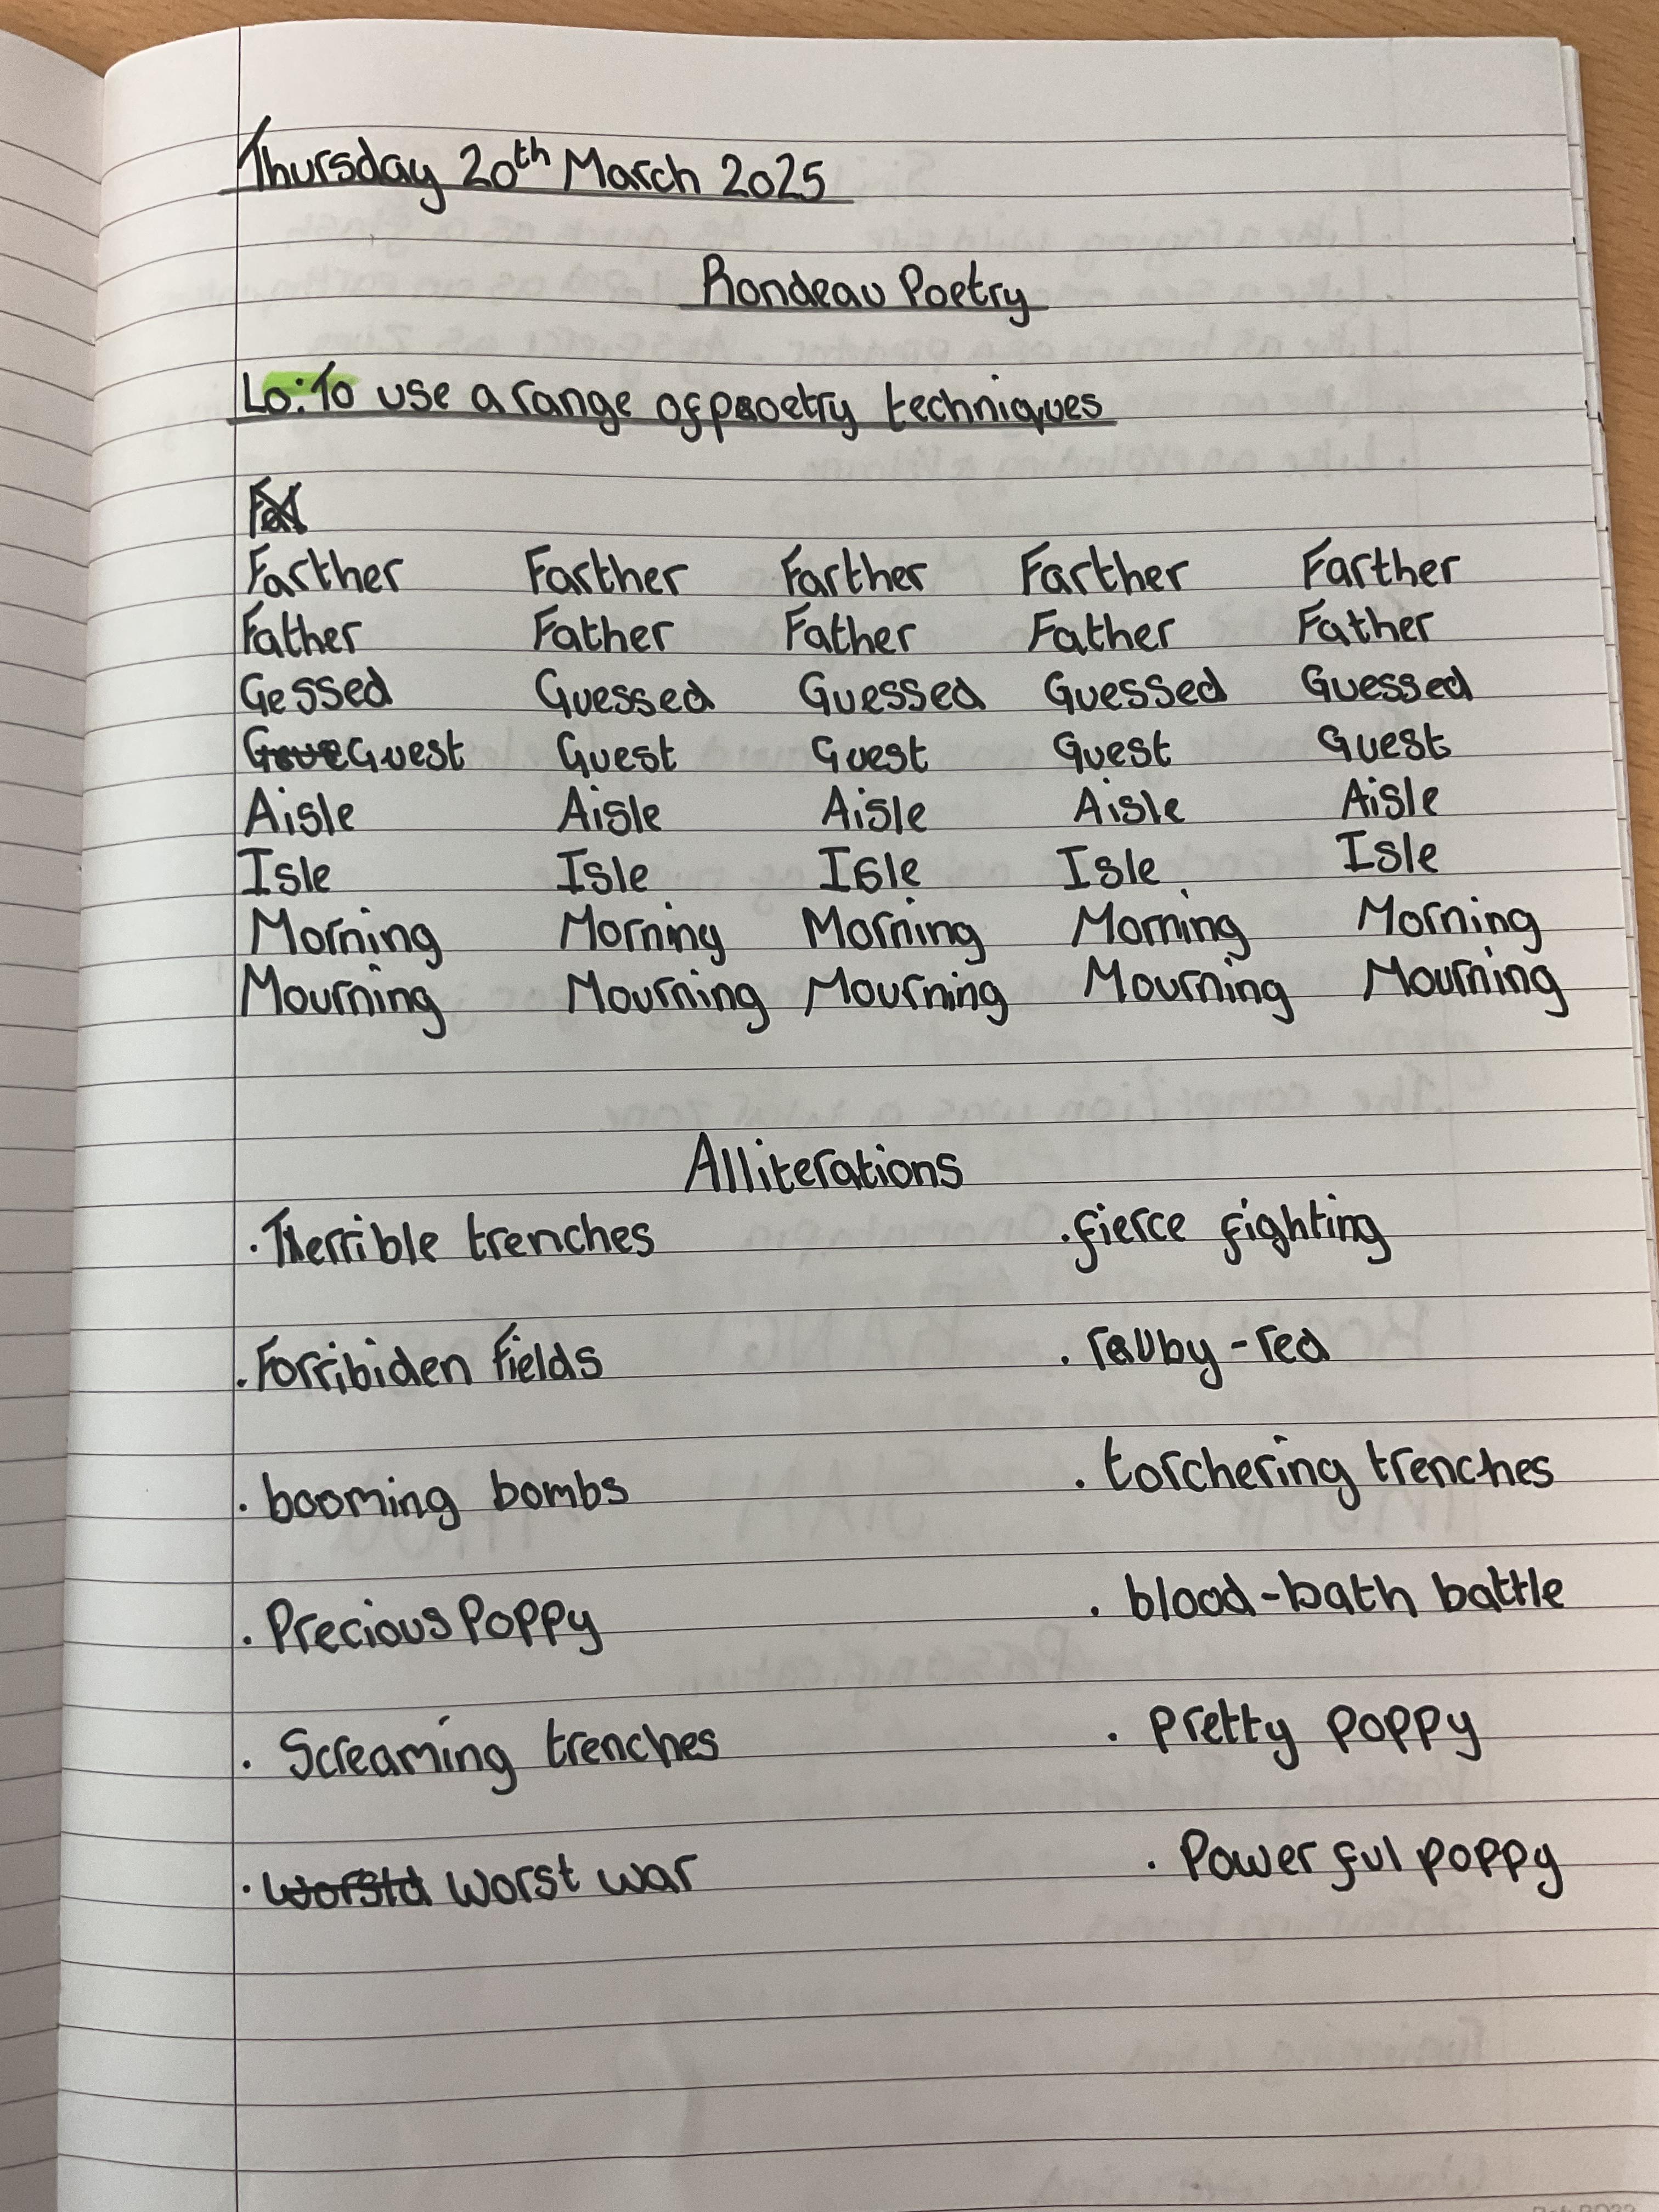 Thursday 20th March 2025
Rondeau Poetry
Lo: To use a range of poetry techniques
Farther Farther Farther Farther Farther
Father Father Father Father Father
Gessed Guessed Guessed Guessed Guessed
Guest Guest Guest Guest Guest
Aisle Aisle Aisle Aisle Aisle
Isle Isle Isle Isle Isle
Morning Morning Morning Morning Morning
Mourning Mourning Mourning Mourning Mourning
Alliterations
· Terrible trenches · fierce fighting
· Forribiden fields · ruby-red
· booming bombs · torchering trenches
· Precious Poppy · blood-bath battle
· Screaming trenches · pretty poppy
· worst war · Powerful poppy